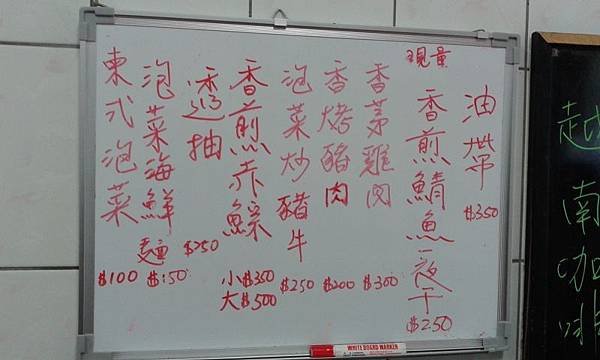 油帶 $350
現量
香煎鯖魚一夜干 $250
香茅雞肉 $300
香烤豬肉 $200
泡菜炒豬牛 $250
香煎赤鯮 小$350 大$500
透抽 $250
泡菜海鮮麵 $150
東式泡菜 $100
WHITE BOARD MARKER
越南咖啡